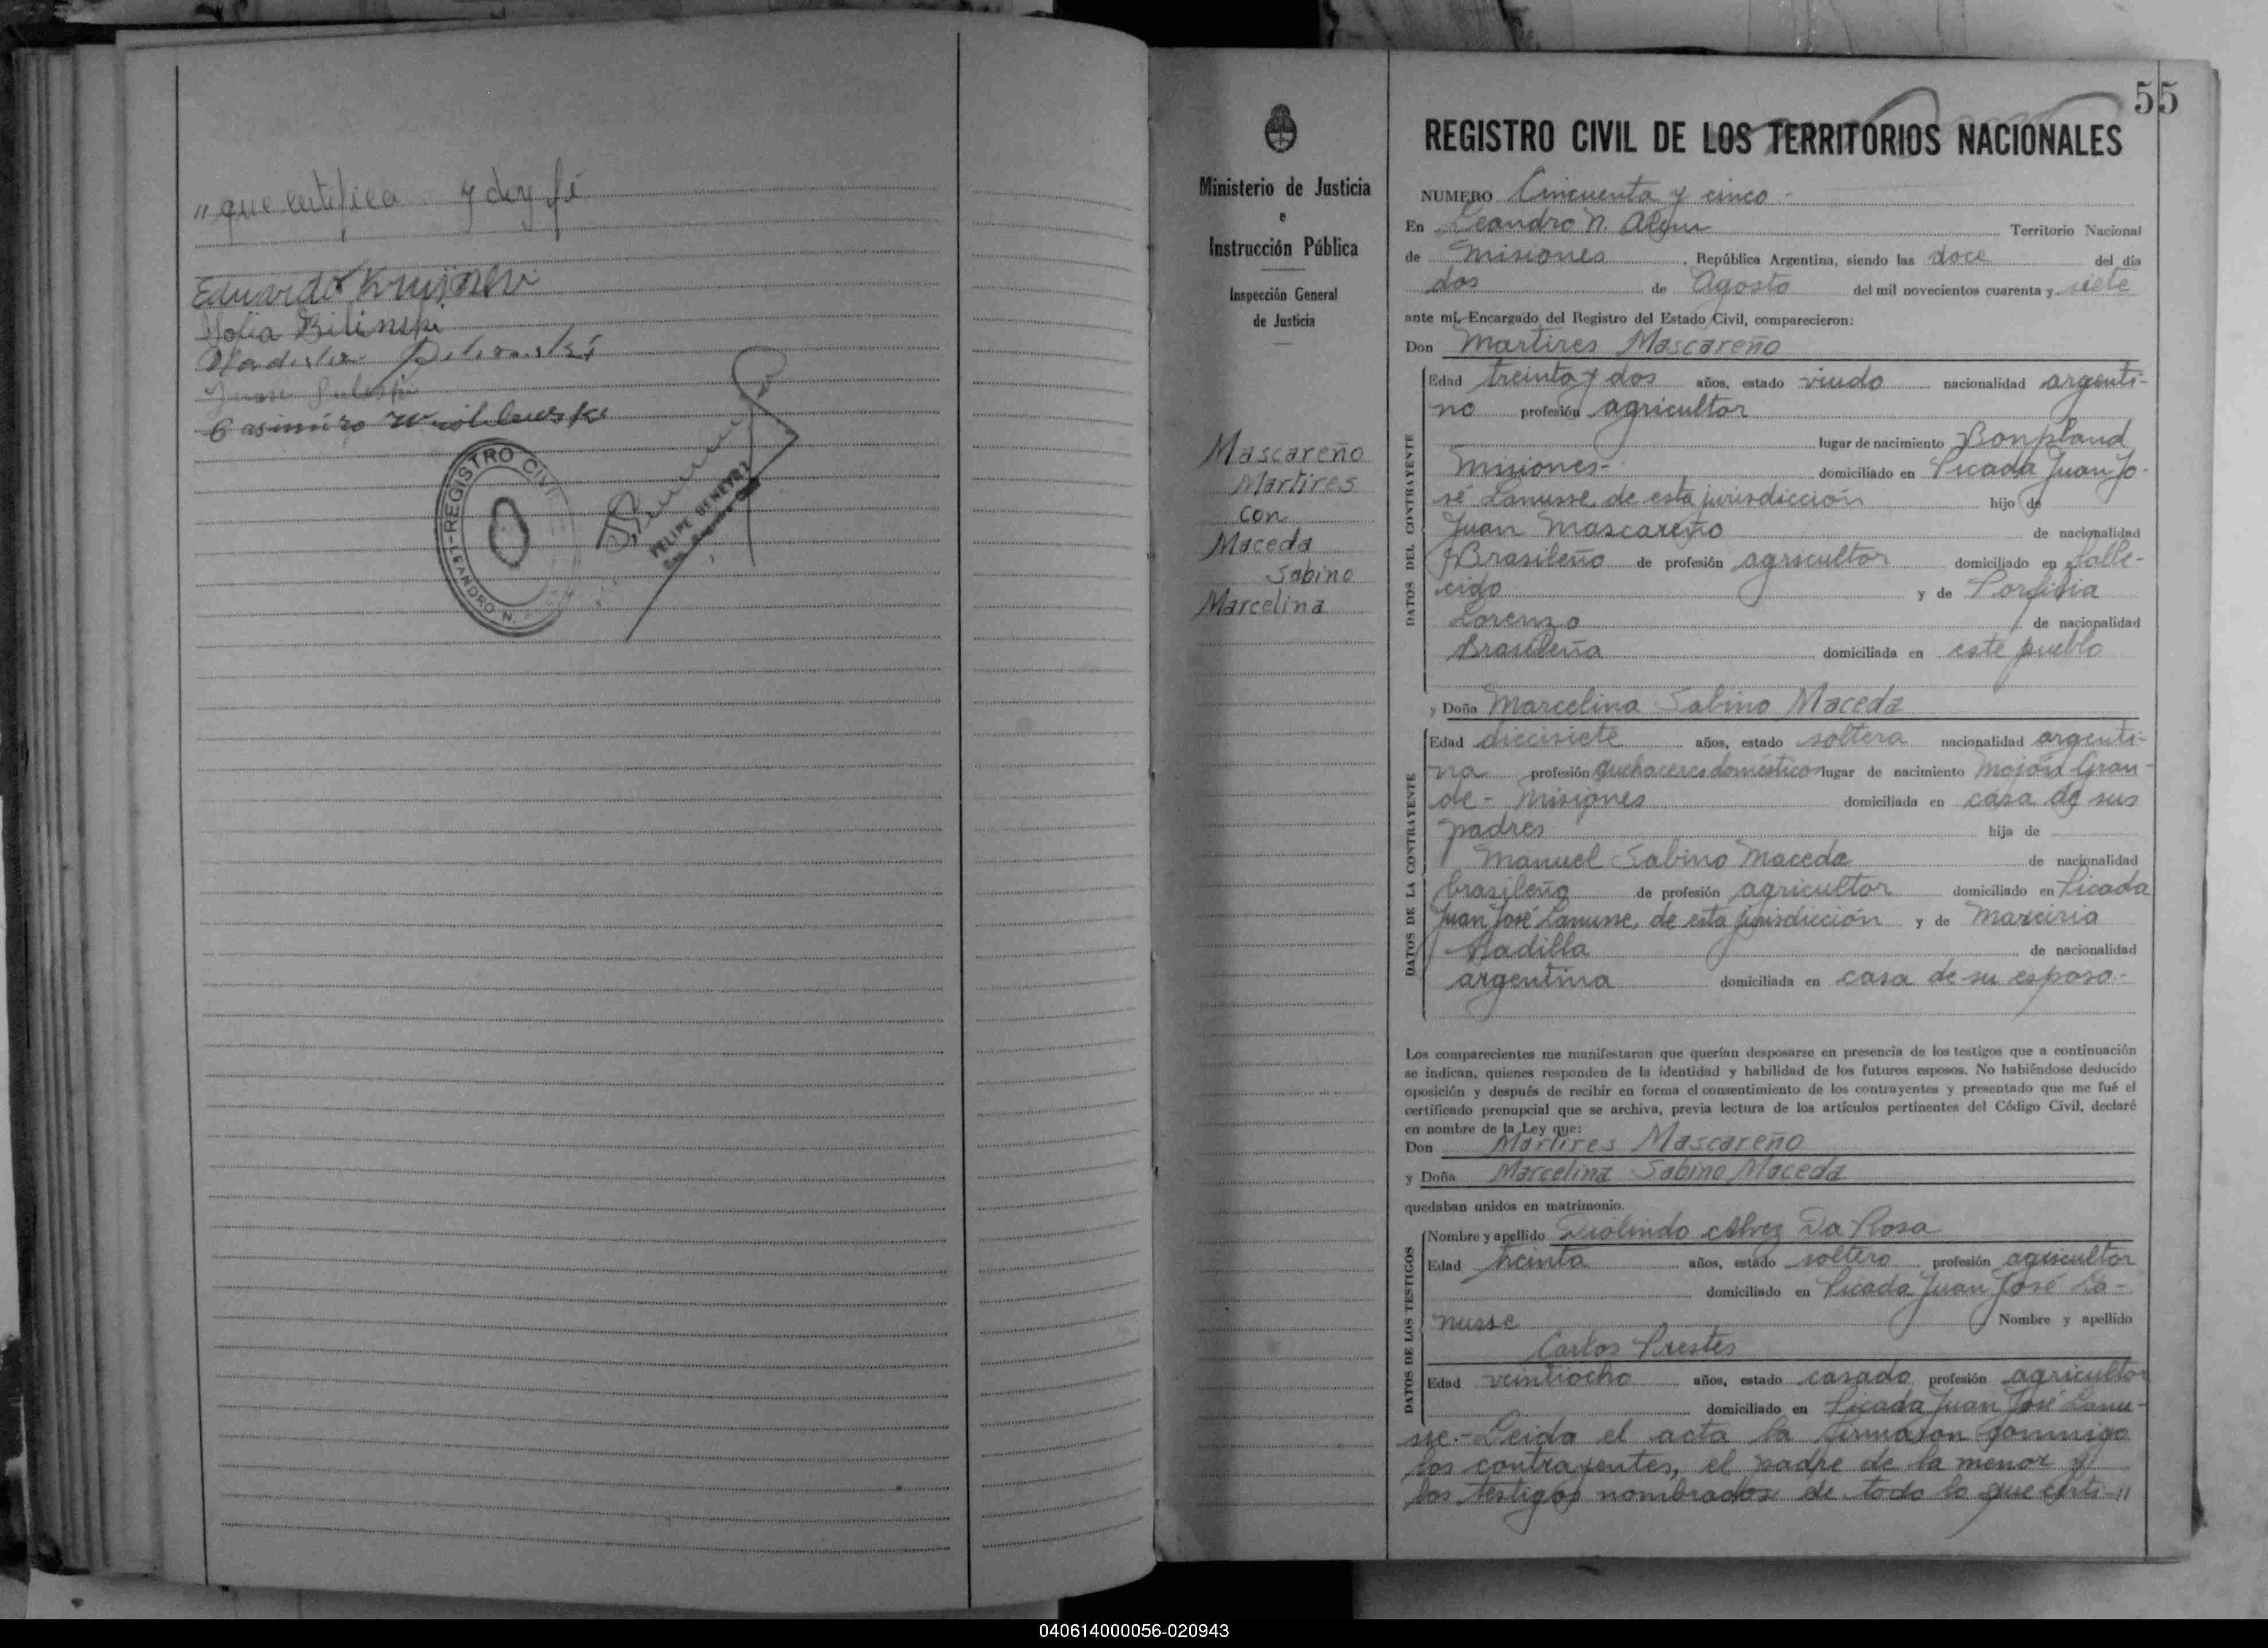 " que certifica y doy fé
Eduardo
Bilinski
Casimiro
REGISTRO CIVIL
LEANDRO N.
FELIPE
55
REGISTRO CIVIL DE LOS TERRITORIOS NACIONALES
Ministerio de Justicia
e
Instrucción Pública
Inspección General
de Justicia
Mascareño
Martires
con
Maceda
Sabino
Marcelina
NUMERO Cincuenta y cinco -
En Leandro N. Alem Territorio Nacional
de Misiones, República Argentina, siendo las doce del día
dos de Agosto del mil novecientos cuarenta y siete
ante mí, Encargado del Registro del Estado Civil, comparecieron:
Don Martires Mascareño
DATOS DEL CONTRAYENTE
Edad treinta y dos años, estado viudo nacionalidad argenti-
no profesión agricultor
lugar de nacimiento Bonpland
Misiones- domiciliado en Picada Juan Jo-
sé Lanusse, de esta jurisdicción hijo de
Juan Mascareño de nacionalidad
Brasileño de profesión agricultor domiciliado en falle-
cido y de Porfiria
Lorenzo de nacionalidad
Brasileña domiciliada en este pueblo
y Doña Marcelina Sabino Maceda
DATOS DE LA CONTRAYENTE
Edad diecisiete años, estado soltera nacionalidad argenti-
na profesión quehaceres domésticos lugar de nacimiento Mojón Gran-
de - Misiones domiciliada en casa de sus
padres hija de
Manuel Sabino Maceda de nacionalidad
brasileña de profesión agricultor domiciliado en Picada
Juan José Lanusse, de esta jurisdicción y de
Padilla de nacionalidad
argentina domiciliada en casa de su esposo.-
Los comparecientes me manifestaron que querían desposarse en presencia de los testigos que a continuación
se indican, quienes responden de la identidad y habilidad de los futuros esposos. No habiéndose deducido
oposición y después de recibir en forma el consentimiento de los contrayentes y presentado que me fué el
certificado prenupcial que se archiva, previa lectura de los artículos pertinentes del Código Civil, declaré
en nombre de la Ley que:
Don Martires Mascareño
y Doña Marcelina Sabino Maceda
quedaban unidos en matrimonio.
DATOS DE LOS TESTIGOS
Nombre y apellido Diolindo Alvez Da Rosa
Edad treinta años, estado soltero profesión agricultor
domiciliado en Picada Juan José La-
nusse Nombre y apellido
Carlos Prestes
Edad veintiocho años, estado casado profesión agricultor
domiciliado en Picada Juan José Lanu-
sse.- Leida el acta la firmaron conmigo
los contrayentes, el padre de la menor y
los testigos nombrados de todo lo que certi-"
040614000056-020943